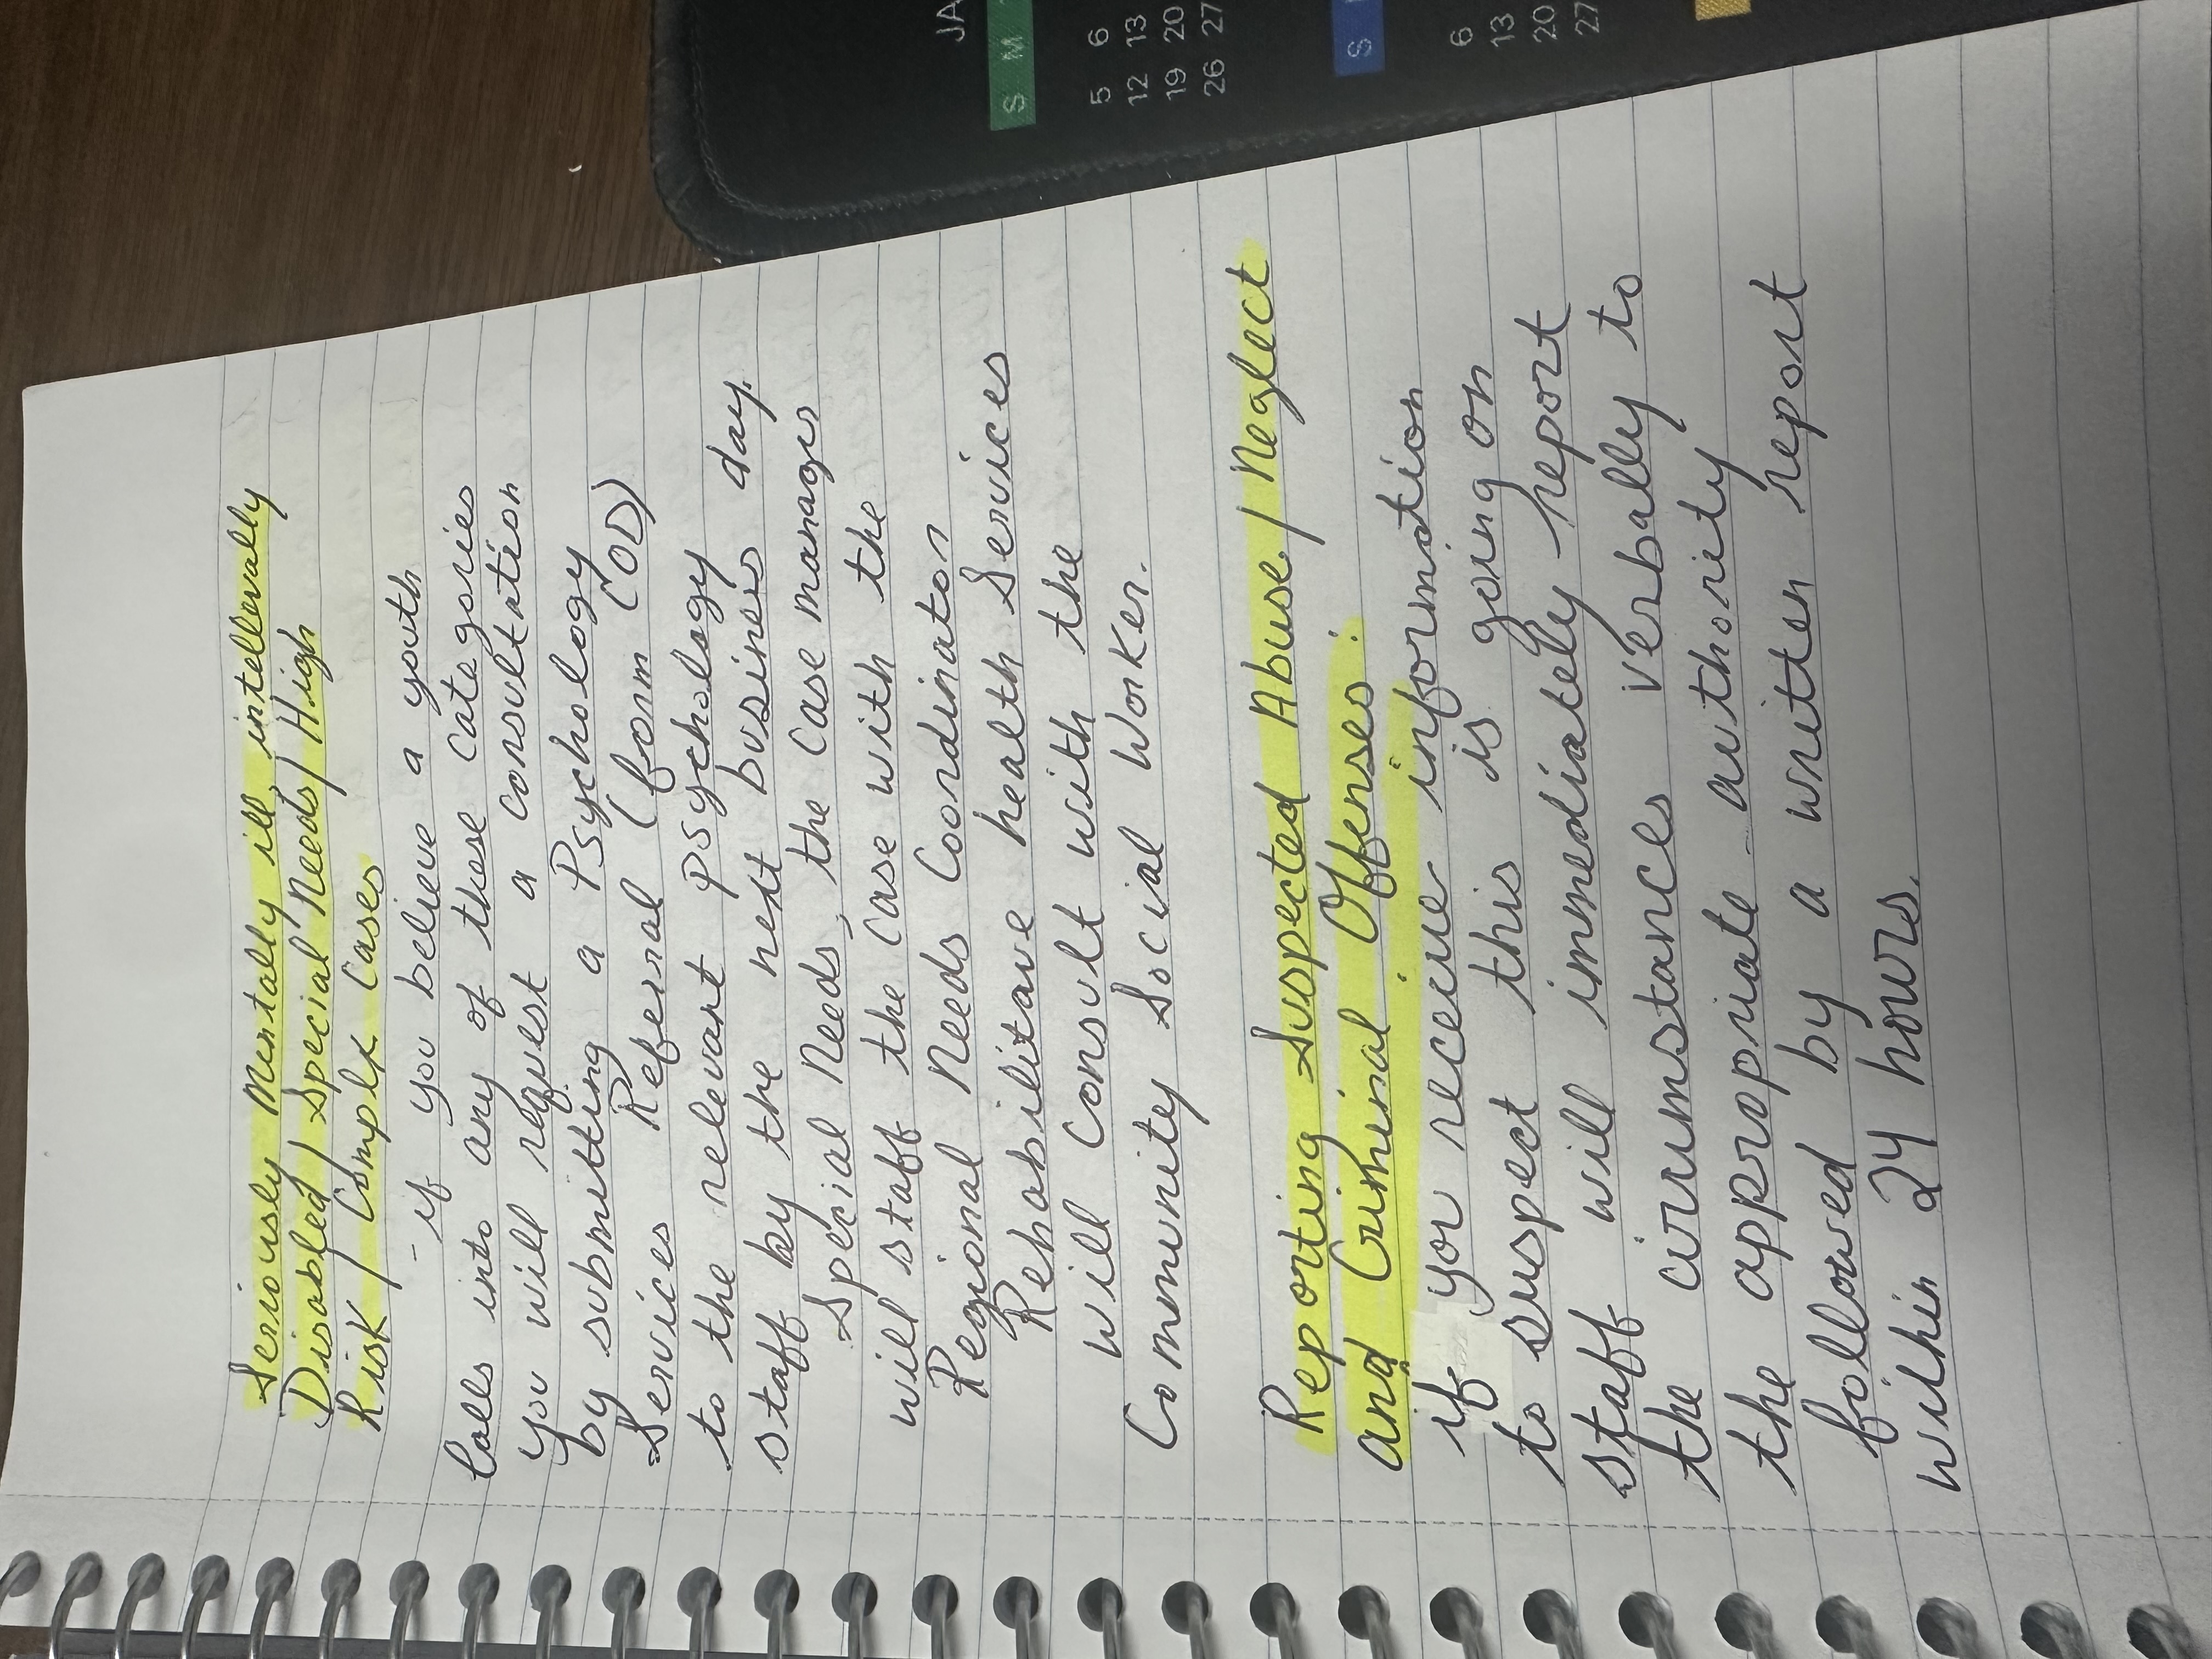 Seriously Mentally ill, intellevally
Disabled / Special Needs / High
Risk / Complx Cases
- if you believe a youth
falls into any of these categories
you will request a consultation
by submitting a Psychology
Services Referral (form COD)
to the relevant psychology
staff by the next business day.
Special Needs, the case manager
will staff the case with the
Regional Needs Coordinator
Rehabilitave health Services
will consult with the
Community Social Worker.
Reporting Suspected Abuse / Neglect
and Criminal Offenses:
if you receive information
to suspect this is going on
staff will immediately report
the cirumstances verbally to
the appropriate authority
followed by a written report
within 24 hours.
JA
S M
5 6
12 13
19 20
26 27
S
6
13
20
27